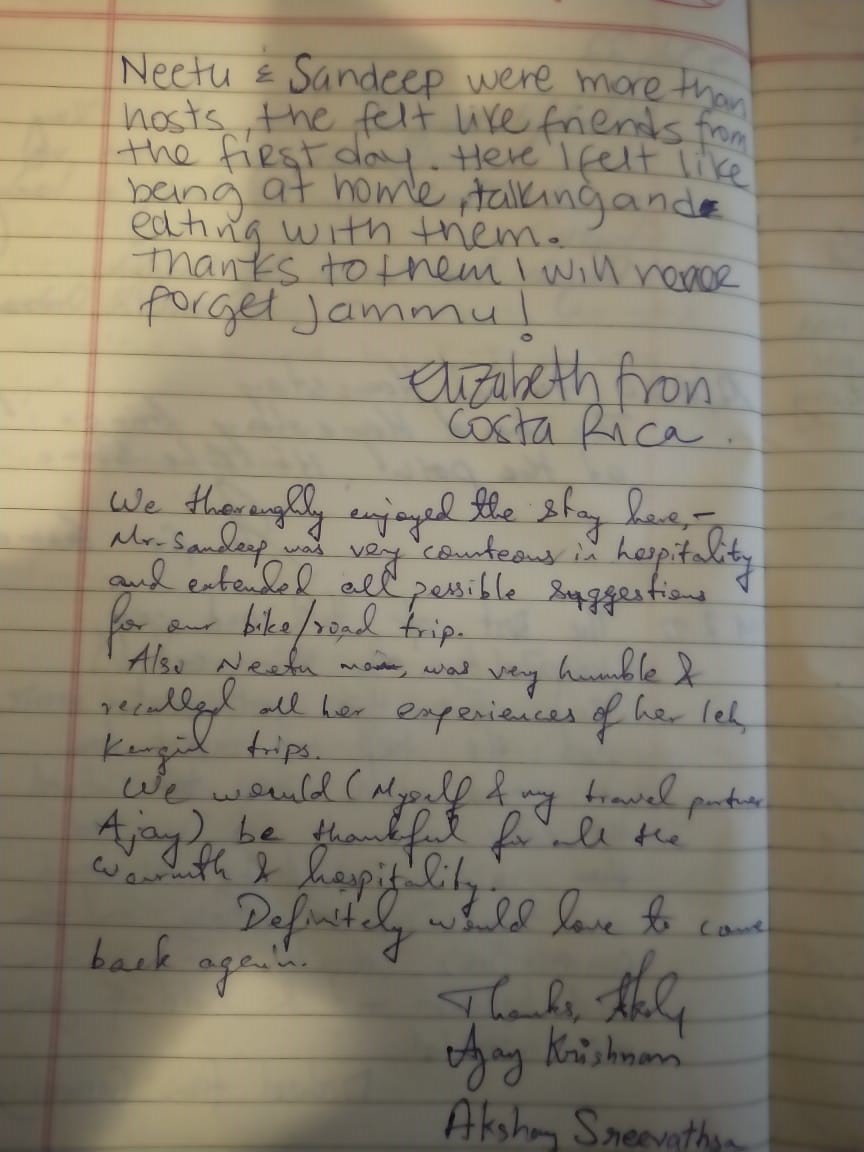 Neetu & Sandeep were more than
hosts, the felt like friends from
the first day. Here I felt like
being at home, talking and
eating with them.
Thanks to them I will never
forget Jammu!
Elizabeth from
Costa Rica.
We thoroughly enjoyed the stay here,-
Mr. Sandeep was very courteous in hospitality
and extended all possible suggestions
for our bike/road trip.
Also Neetu mam, was very humble &
recalled all her experiences of her leh,
Kargil trips.
We would (Myself & my travel partner
Ajay) be thankful for all the
warmth & hospitality.
Definitely would love to come
back again.
Thanks,
Ajay Krishnan
Akshay Sreevathsa